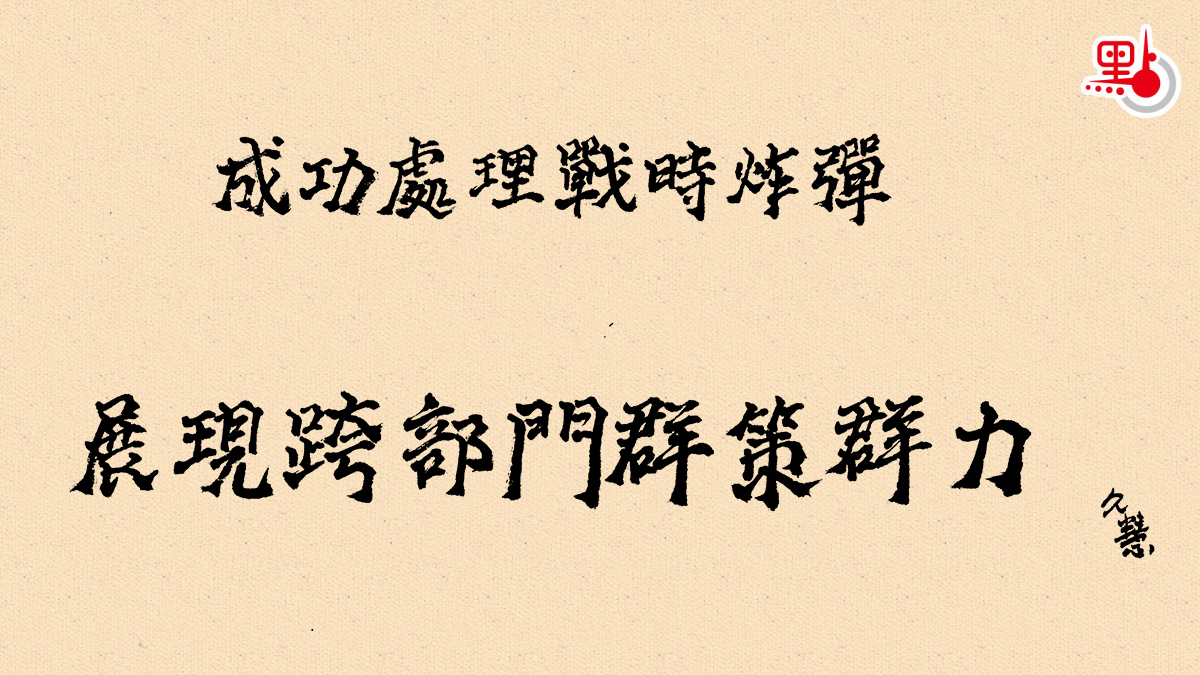 點
成功處理戰時炸彈
展現跨部門群策群力
久慧